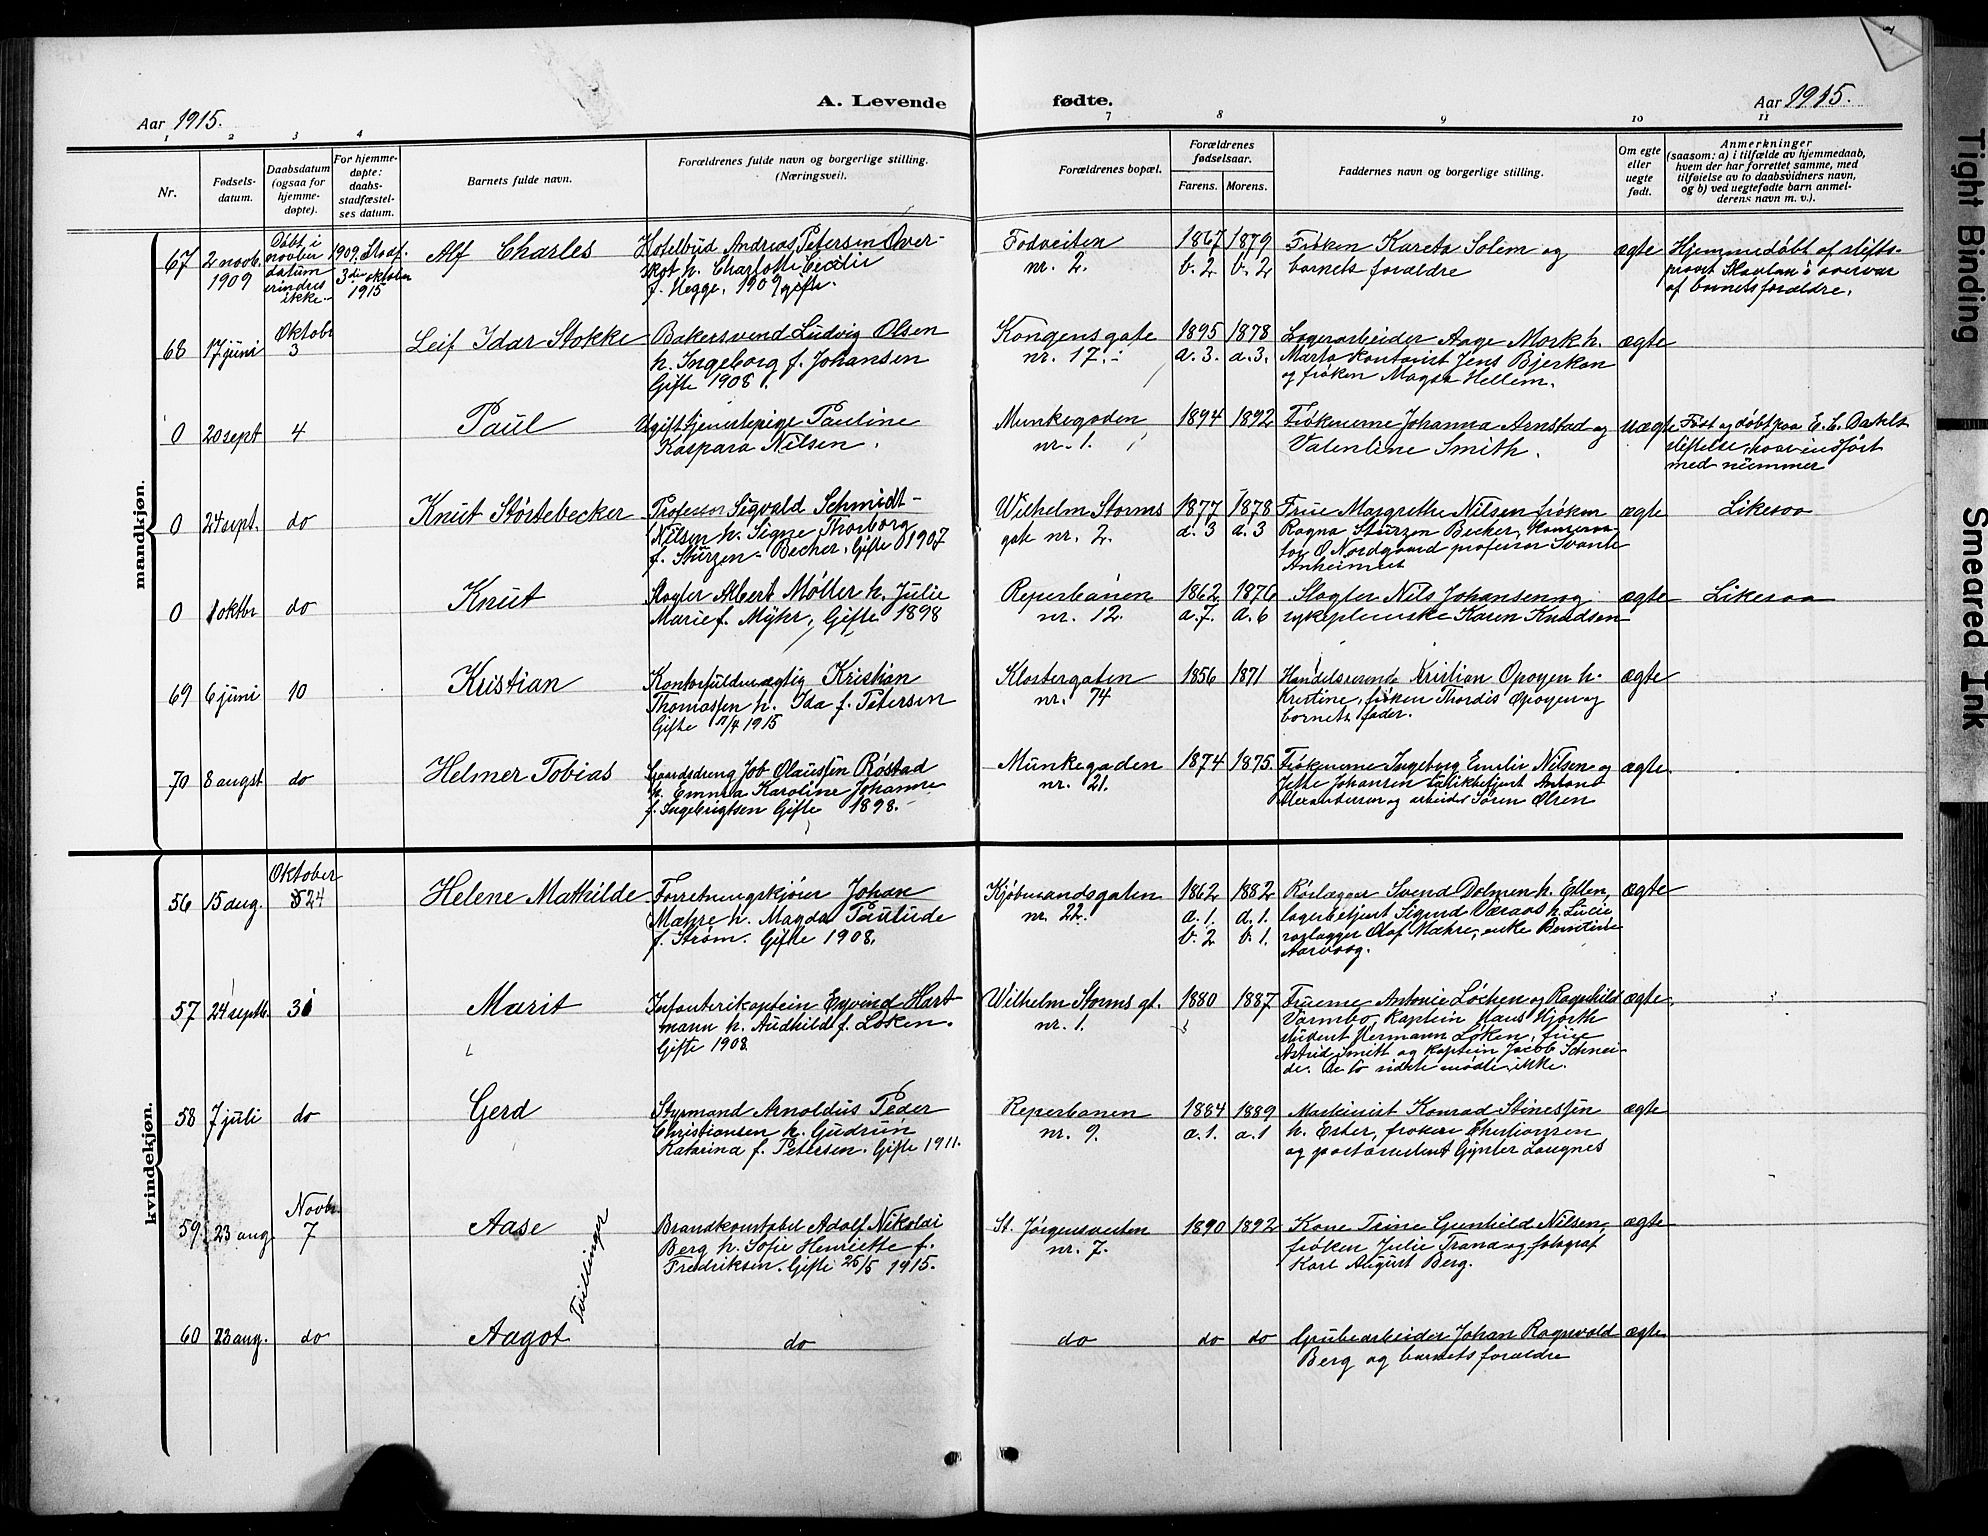 A. Levende fødte.
Aar 1915.
Aar 1915.
1 2 3 4 7 8 9 10 11
Nr.
Fødsels-
datum.
Daabsdatum
(ogsaa for
hjemme-
døpte).
For hjemme-
døpte:
daabs-
stadfæstel-
ses datum.
Barnets fulde navn.
Forældrenes fulde navn og borgerlige stilling.
(Næringsvei).
Forældrenes bopæl.
Forældrenes
fødselsaar.
Farens. Morens.
Faddernes navn og borgerlige stilling.
Om egte
eller
uegte
født.
Anmerkninger
(saasom: a) i tilfælde av hjemmedaab,
hvem der har forrettet samme, med
tilføielse av to daabsvidners navn,
og b) ved uegtefødte barn anmel-
derens navn m. v.).
mandkjøn.
67
2 novb.
1909
Døbt i
novber
datum
erindres
ikke
1909. Stadf.
3die oktober
1915
Alf Charles
Hotelbud Andreas Petersen Over-
skot h. Charlotte Cecilie
f. Hegge. 1909 gifte.
Fodveiten
nr. 2.
1867
b. 2
1879
b. 2
Frøken Kareta Solem og
barnets forældre
ægte
Hjemmedøbt af stifts-
provst
af barnets forældre.
68
17 juni
Oktobr
3
Leif Idar Stokke
Bakersvend Ludvig Olsen
h. Ingeborg f. Johansen
Gifte 1908.
Kongensgate
nr. 17.
1895
a. 3.
1878
a. 3.
Lagerarbeider Aage Mork h.
Marta kontorist Jens Bjerkan
og frøken Magda Hellem.
ægte
0
20 sept
4
Paul
Ugift tjenestepige Pauline
Kaspara Nilsen.
Munkegaden
nr. 1.
1894
1892
Frøknerne Johanna Arnstad og
Valentine Smith.
uægte
Født og døbt paa E. C. Dahls
stiftelse, hvor indført
med nummer
0
24 sept.
do
Knut Störtebecker
Professor Sigvald Schmidt-
Nilsen h. Signe Thorborg
f. Stürzen-Becher. Gifte 1907
Wilhelm Storms
gate nr. 2.
1877
a. 3
1878
a. 3
Frue Margrethe Nilsen frøken
Ragna Stürzen Becker, konserva-
tor O. Nordgaard professor Svante
ægte
Likesaa
0
1 oktbr
do
Knut
Slagter Albert Møller h. Julie
Marie f. Myhr, Gifte 1898
Reperbanen
nr. 12.
1862
a. 7.
1876
a. 6
Slagter Nils Johansen og
sykepleierske Karen Knudsen
ægte
Likesaa
69
6 juni
10
Kristian
Kontorfuldmægtig Kristian
Thomassen h. Ida f. Petersen
Gifte 17/4 1915
Klostergaten
nr. 74
1856
1871
Handelsreisende Kristian Opøyen h.
Kristine, frøken Thordis Opøyen og
barnets fader.
ægte
70
8 augst
do
Helmer Tobias
Gaardsdreng Job Olaussen Røstad
h. Emma Karoline Johanne
f. Ingebrigtsen Gifte 1898.
Munkegaden
nr. 21.
1874
1875.
Frøknerne Ingeborg Emelie Nilsen og
Jette Johansen butikbetjent Antono
Alexandersen og arbeider Søren Olsen
ægte.
kvindekjøn.
56
15 aug.
Oktober
24
Helene Mathilde
Forretningskjører Johan
Mæhre h. Magda Paulude
f. Strøm. Gifte 1908.
Kjøbmandsgaten
nr. 22.
1862
a. 1.
b. 2
1882
a. 1.
b. 1.
Rørlægger Svend Dolmen h. Ellen,
lagerbetjent Sigurd Væraas h. Lucie
rørlægger Olaf Mæhre, enke Berntine
Aarvaag.
ægte
57
24 septb.
31
Marit
Infanterikaptein Eyvind Hart-
mann h. Audhild f. Løken.
Gifte 1908
Wilhelm Storms gt.
nr. 1.
1880
1887
Fruerne Antonie Løchen og Ragnhild
Varmbo, kaptein Hans Hjorth
student Hermann Løken, frue
Astrid Smitt og kaptein Jacob Schnei-
der. De to sidste mødte ikke.
ægte.
58
7 juli
do
Gerd
Styrmand Arnoldus Peder
Christiansen h. Gudrun
Katarina f. Petersen. Gifte 1911.
Reperbanen
nr. 9.
1884
a. 1.
1889
a. 1
Maskinist Konrad Stinessen
h. Ester, frøken Christiansen
og postassistent Gynter Langnes
ægte
59.
23 aug
Novbr.
7
Aase
Tvillinger
Brandkonstabel Adolf Nikolai
Berg h. Sofie Henriette f.
Fredriksen. Gifte 25/5 1915.
St. Jørgensveiten
nr. 7.
1890
1892
Kone Trine Gunhild Nilsen,
frøken Julie Trana og fotograf
Karl August Berg.
ægte
60
23 aug.
do
Aagot
do
do
do
do
Grubearbeider Johan Ragnvald
Berg og barnets forældre
ægte
Tight Binding
Smeared Ink